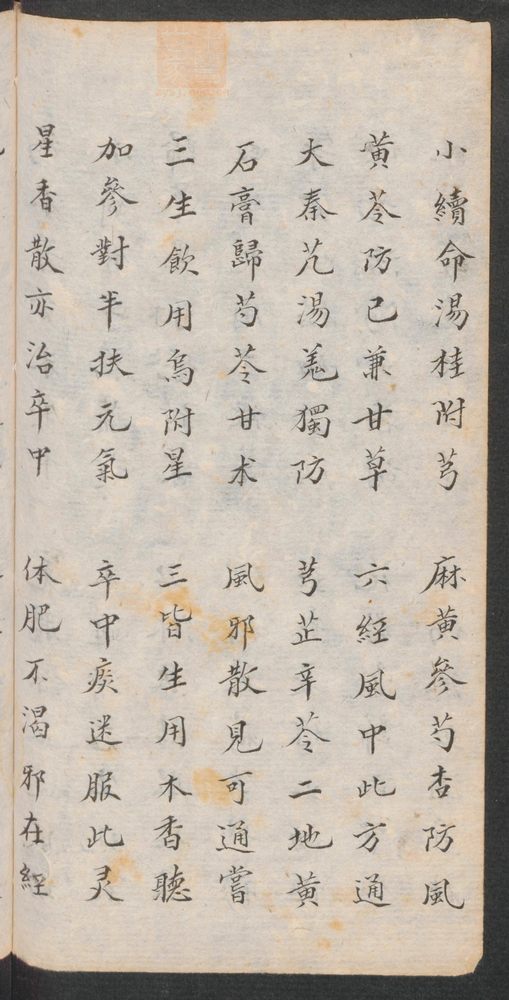 小續命湯桂附芎 麻黄參芍杏防風
黄芩防已兼甘草 六經風中此方通
大秦艽湯羗獨防 芎芷辛芩二地黄
石膏歸芍苓甘术 風邪散見可通嘗
三生飲用烏附星 三皆生用木香聽
加參對半扶元氣 卒中痰迷服此灵
星香散亦治卒中 体肥不渴邪在經